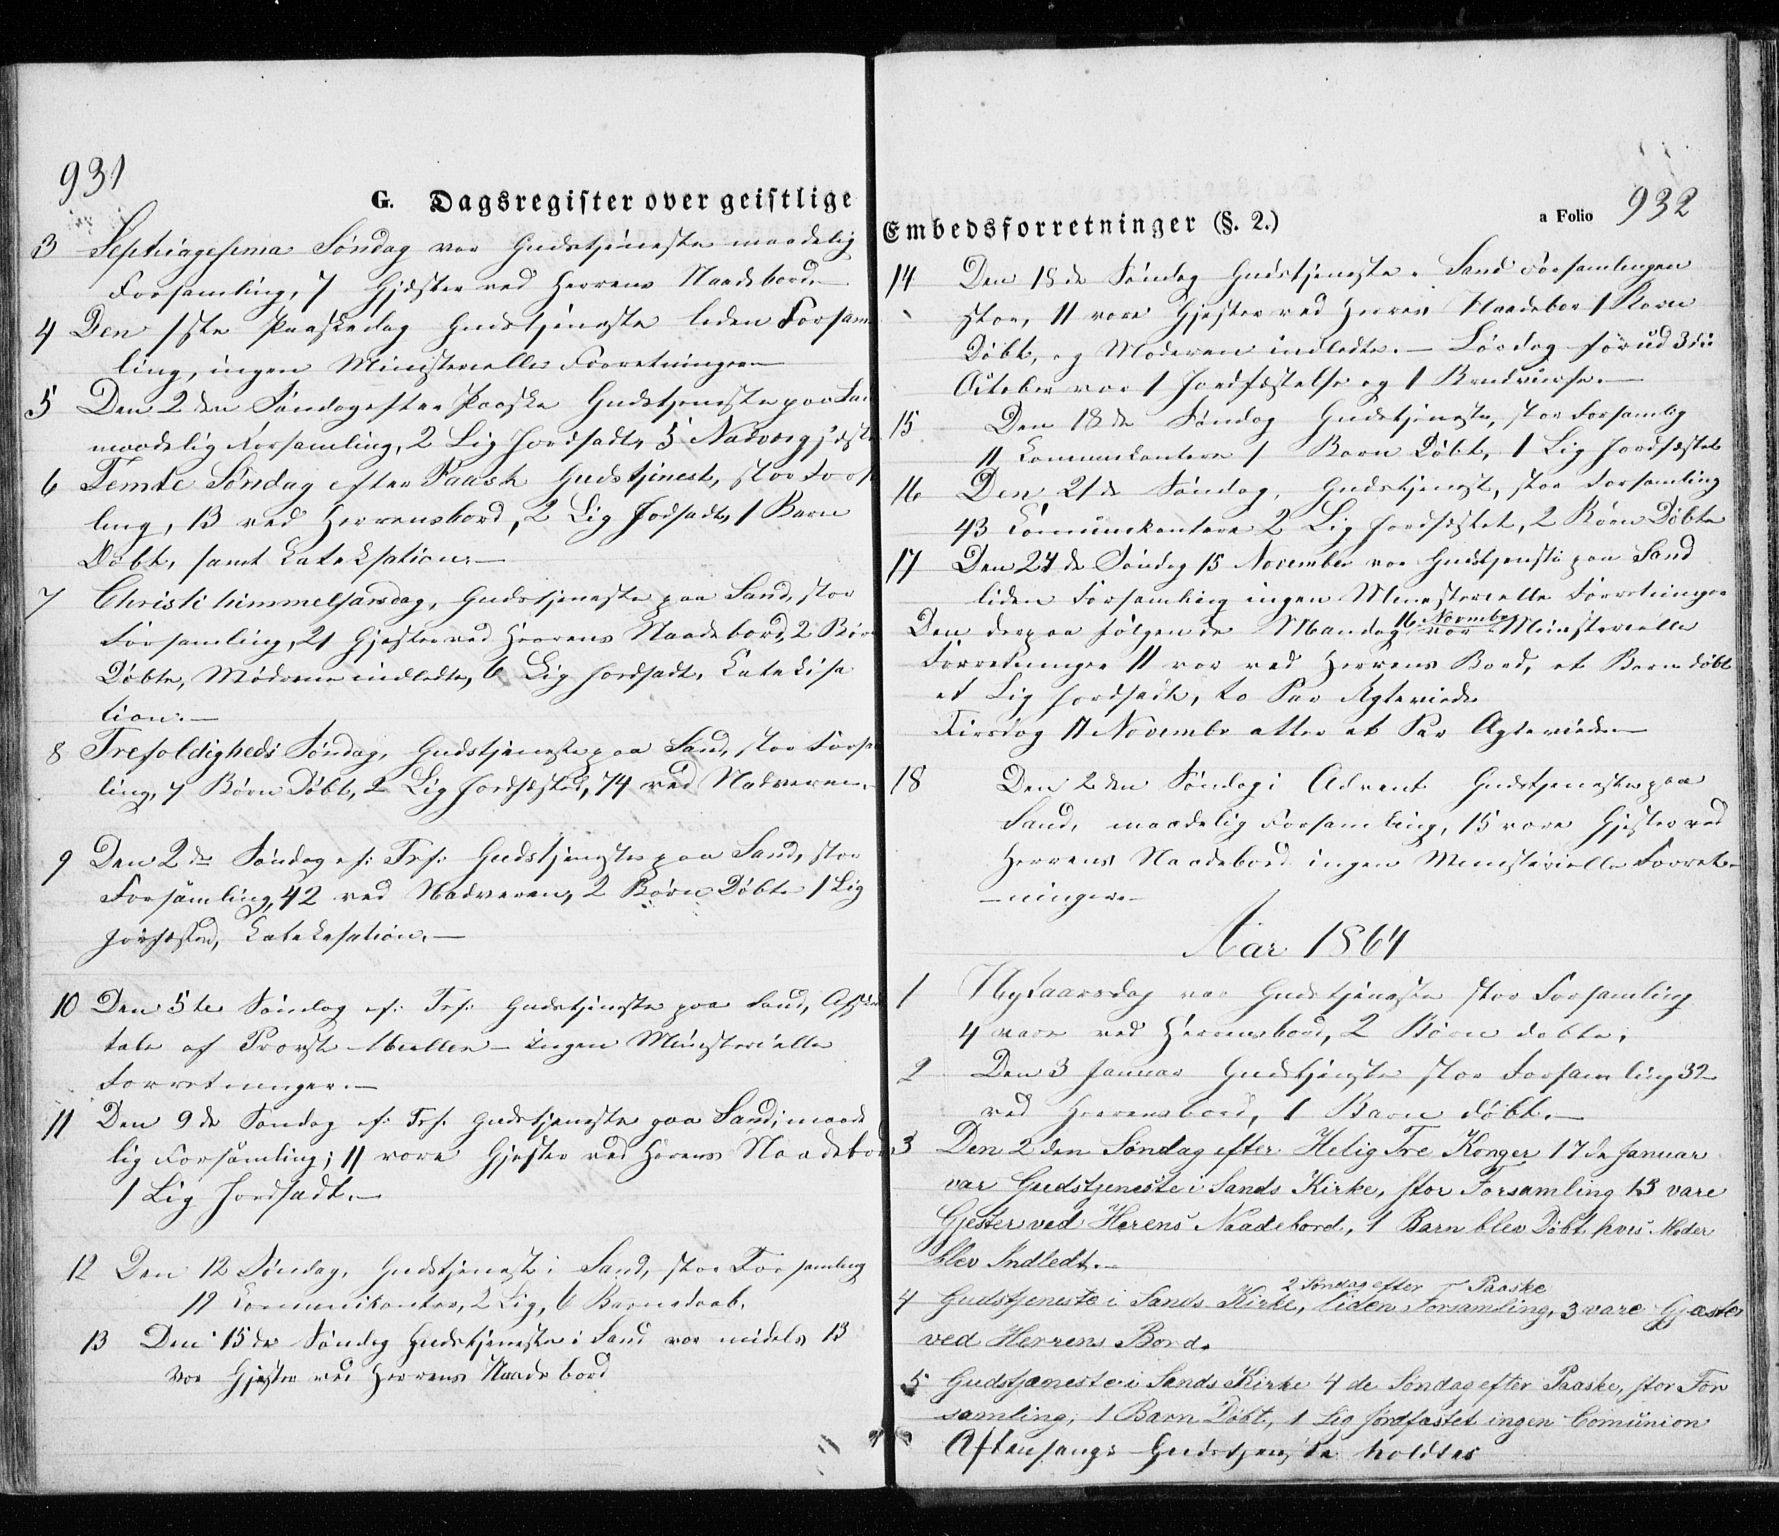 931
G. Dagsregister over geistlige
3 Septuagesima Søndag var Gudstjeneste maadelig
Forsamling, 7 Gjæster ved Herrens Naadebord.—
4 Den 1ste Paaskedag Gudstjeneste liden Forsam
ling, ingen Ministerielle Forretninger—
5 Den 2den Søndag efter Paaske Gudstjeneste paa San
maadelig Forsamling, 2 Lig Jordsadt, 5 Nadvergjæste
6 Femte Søndag efter Paask Gudstjenest, stor Fors
ling, 13 ved Herrensbord, 2 Lig Jodsadt, 1 Barn
Døbt, samt Kateksation.—
7 Christi himmelfarsdag, Gudstjeneste paa Sand, stor
Forsamling, 21 Gjester ved Herrens Naadebord, 2 Børn
Døbte, Mødrene indledte, 6 Lig Jordsadt, Katekisa
tion.—
8 Trefoldigheds Søndag, Gudstjeneste paa Sand, stor Forsa
ling, 7 Børn Døbt, 2 Lig Jordfæsted, 74 ved Nadveren.—
9 Den 2de Søndag ef: Tref: Gudstjeneste paa Sand, stor
Forsamling, 42 ved Nadveren, 2 Børn Døbte 1 Lig
Katekesation.—
10 Den 5te Søndag ef: Tref: Gudstjeneste paa Sand,
tale af Provst Muller— ingen Ministerielle
Forretninger.—
11 Den 9de Søndag ef: Tref. Gudstjeneste paa Sand, maade
lig Forsamling; 11 vare Gjester ved Herrens Naadebord
1 Lig Jordsadt.—
12 Den 12 Søndag, Gudstjenest i Sand, stor Forsamling
19 Kommunikanter, 2 Lig, 6 Barnedaab.
13 Den 15de Søndag Gudstjeneste i Sand var midels 13
var Gjester ved Herrens Naadebord
Embedsforretninger (§. 2.)
a Folio 932
14 Den 18de Søndag Gudstjeneste i Sand Forsamlingen
stor, 11 vare Gjester ved Herrens Naadebor 1 Barn
Døbt, og Moderen indledte.— Lørdag forud 3die
October var 1 Jordfæstelse og 1 Brudvielse.—
15 Den 18de Søndag Gudstjeneste, stor Forsamlig
11 Kommunikantere 1 Barn Døbt, 1 Lig Jordfæstet
16 Den 21de Søndag, Gudstjenest, stor Forsamling
43 Comunikantere 2 Lig Jordfæstet, 2 Børn Døbte
17 Den 24de Søndag 15 November var Gudstjenste paa Sand
liden Forsamling ingen Ministerielle Forretninger
16 Novmbr
Den derpaa følgende Mandag var Ministerielle
Forretninger 11 var ved Herrens Bord, et Barn døbt
et Lig jordsadt, to Par Ægteviede
Tirsdag 17 Novembr atter et Par Ægteviede.—
18 Den 2den Søndag i Advent Gudstjeneste paa
Sand, maadelig Forsamling, 15 vare Gjester ved
Herrens Naadebord ingen Ministerielle Forret-
ninger.—
Aar 1864
1 Nytaarsdag var Gudstjeneste stor Forsamling
4 vare ved Herrensbord, 2 Børn døbte.
2 Den 3 Januar Gudstjenste stor Forsamling 32
ved Herrensbord, 1 Barn døbt.—
3 Den 2den Søndag efter Helig Tre Konger 17de Januar
var Gudstjeneste i Sands Kirke, stor Forsamling 13 vare
Gjester ved Herens Naadebord, 1 Barn blev Døbt hvis Moder
blev Indledt.—
2 Søndag efter Paaske
4 Gudstjeneste i Sands Kirke, liden Forsamling, 3 vare Gjæster
ved Herrens Bord.
5 Gudstjæneste i Sands Kirke 4de Søndag efter Paaske, stor For
samling, 1 Barn Døbt, 1 Lig Jordfæstet ingen Comünion
Aftensangs Gudstjeneste holdtes